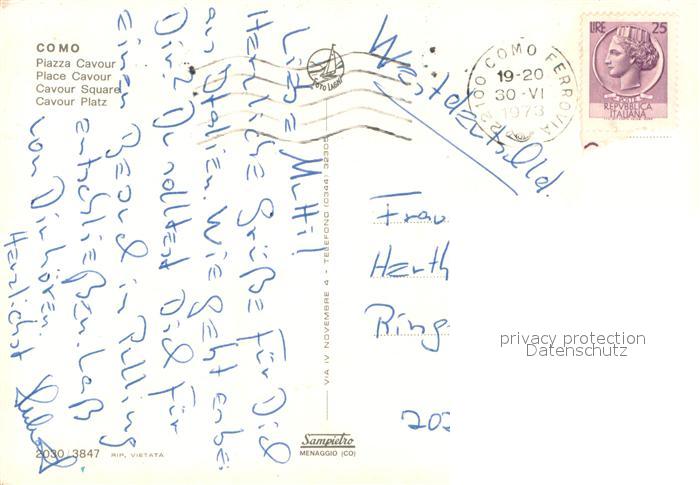 COMO
Piazza Cavour
Place Cavour
Cavour Square
Cavour Platz
Liebe Mutti!
Herzliche Grüße für Dich
aus Italien. Wie geht es bei
Dir? Du solltest Dich für
einen Besuch in
entschließen. Laß
von Dir hören.
Herzlichst
2030/3847 RIP. VIETATA
VIA IV NOVEMBRE 4 - TELEFONO (0344) 32305
Sampietro
MENAGGIO (CO)
22100 COMO FERROVIA
19-20
30-VI
1973
LIRE 25
POSTE
REPVBBLICA
ITALIANA
Westdeutschld.
Frau
Herth
Ring
202
privacy protection
Datenschutz